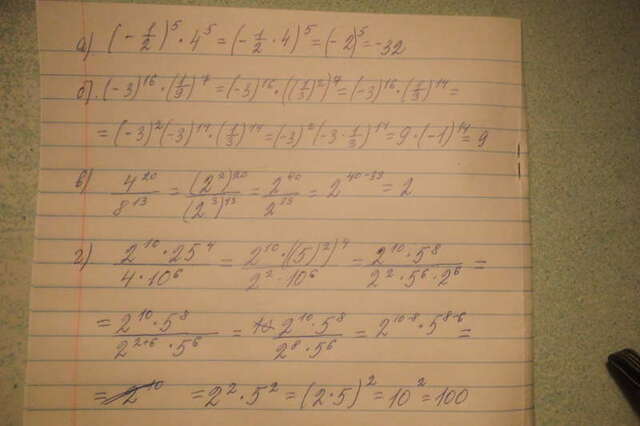 а) (-1/2)^5 · 4^5 = (-1/2 · 4)^5 = (-2)^5 = -32
б) (-3)^16 · (1/9)^7 = (-3)^16 · ((1/3)^2)^7 = (-3)^16 · (1/3)^14 =
= (-3)^2 (-3)^14 · (1/3)^14 = (-3)^2 (-3 · 1/3)^14 = 9 · (-1)^14 = 9
в) 4^20 / 8^13 = (2^2)^20 / (2^3)^13 = 2^40 / 2^13 = 2^40-39 = 2
г) 2^10 · 25^4 / 4 · 10^6 = 2^10 · ((5)^2)^4 / 2^2 · 10^6 = 2^10 · 5^8 / 2^2 · 5^6 · 2^6 =
= 2^10 · 5^8 / 2^2+6 · 5^6 = 2^10 · 5^8 / 2^8 · 5^6 = 2^10-8 · 5^8-6 =
= 2^10 = 2^2 · 5^2 = (2 · 5)^2 = 10^2 = 100